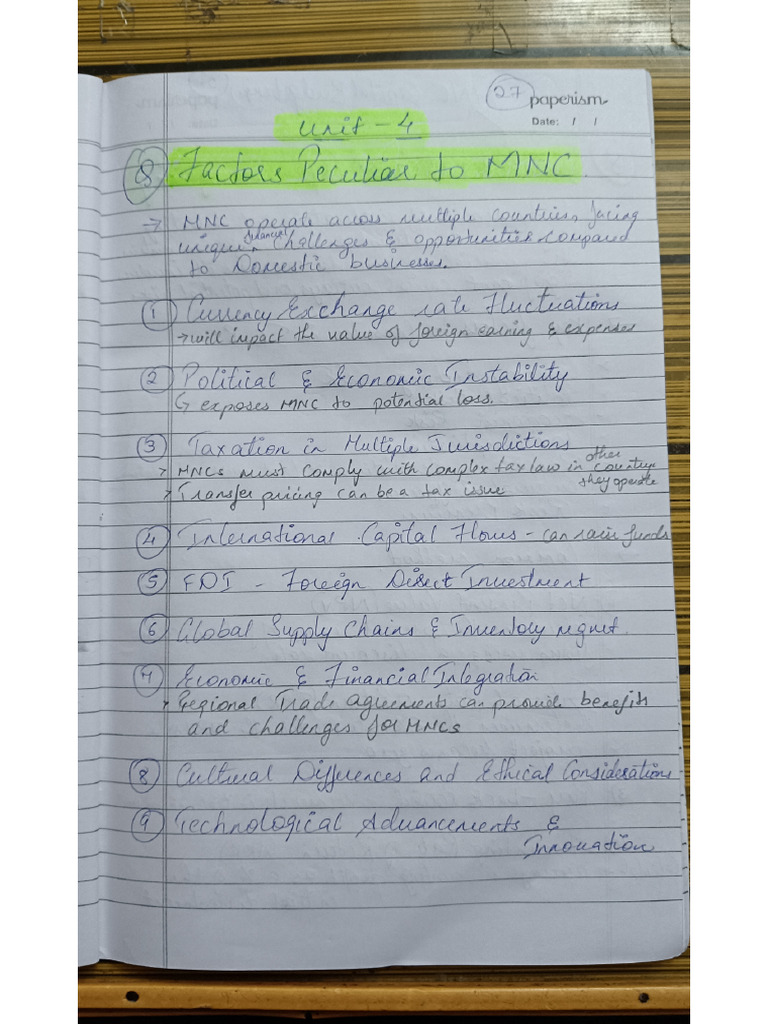 27 paperism
Date: / /
Unit - 4
Q Factors Peculiar to MNC.
→ MNC operate across multiple countries, facing
unique financial challenges & opportunities compared
to Domestic businesses.
1 Currency Exchange rate Fluctuations
→ will impact the value of foreign earning & expenses
2 Political & Economic Instability
↳ exposes MNC to potential loss.
3 Taxation in Multiple Jurisdictions
→ MNCs must comply with complex tax law in other countries
they operate
→ Transfer pricing can be a tax issue
4 International Capital Flows - can raise funds
5 FDI - Foreign Direct Investment
6 Global Supply Chains & Inventory mgmt.
7 Economic & Financial Integration
→ Regional Trade agreements can provide benefits
and challenges for MNCs
8 Cultural Differences and Ethical Considerations
9 Technological Advancements &
Innovation